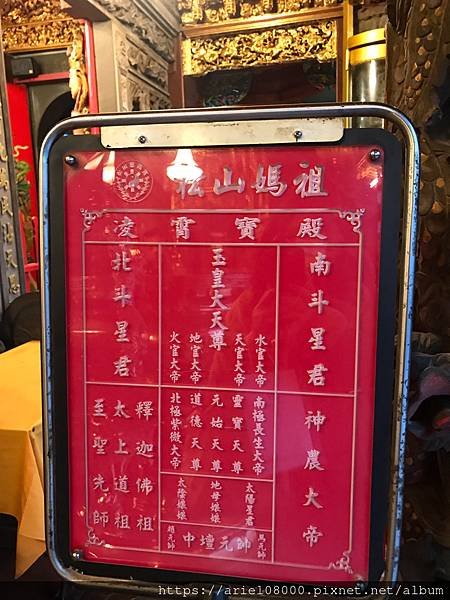 松山媽祖
凌霄寶殿
南斗星君
玉皇大天尊
水官大帝
天官大帝
地官大帝
火官大帝
北斗星君
神農大帝
南極長生大帝
靈寶天尊
元始天尊
道德天尊
北極紫微大帝
太陽星君
地母娘娘
太陰娘娘
馬元帥
中壇元帥
趙元帥
釋迦佛祖
太上道祖
至聖先師
https://ariel08000.pixnet.net/album